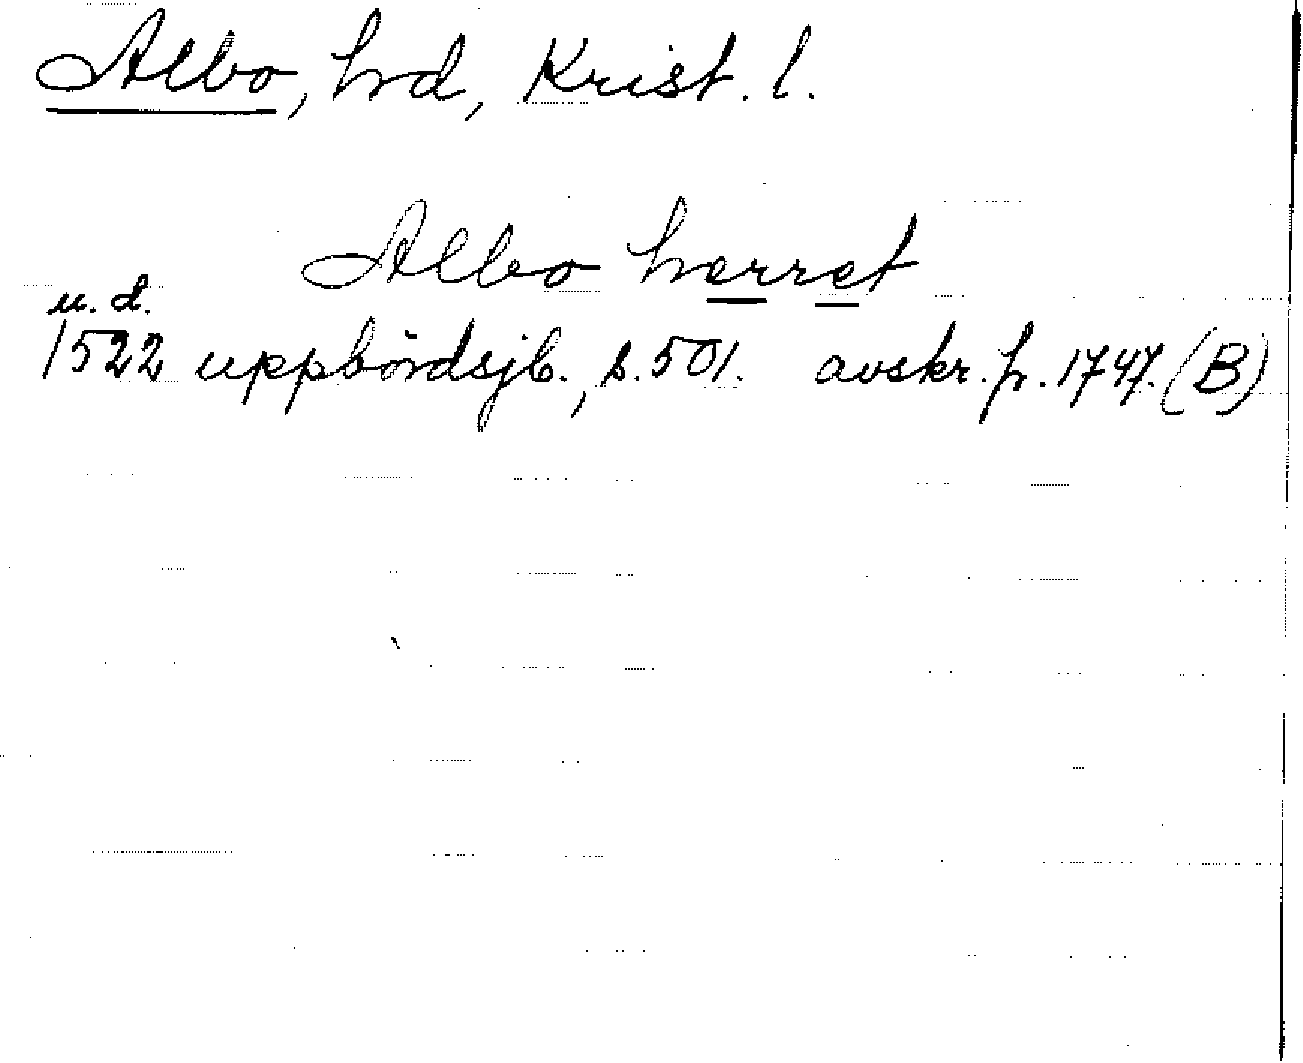 Albo, hrd, Krist. l.
Albo herret
u. d.
1522 uppbördsjb., s. 501. avskr. fr. 1747. (B)